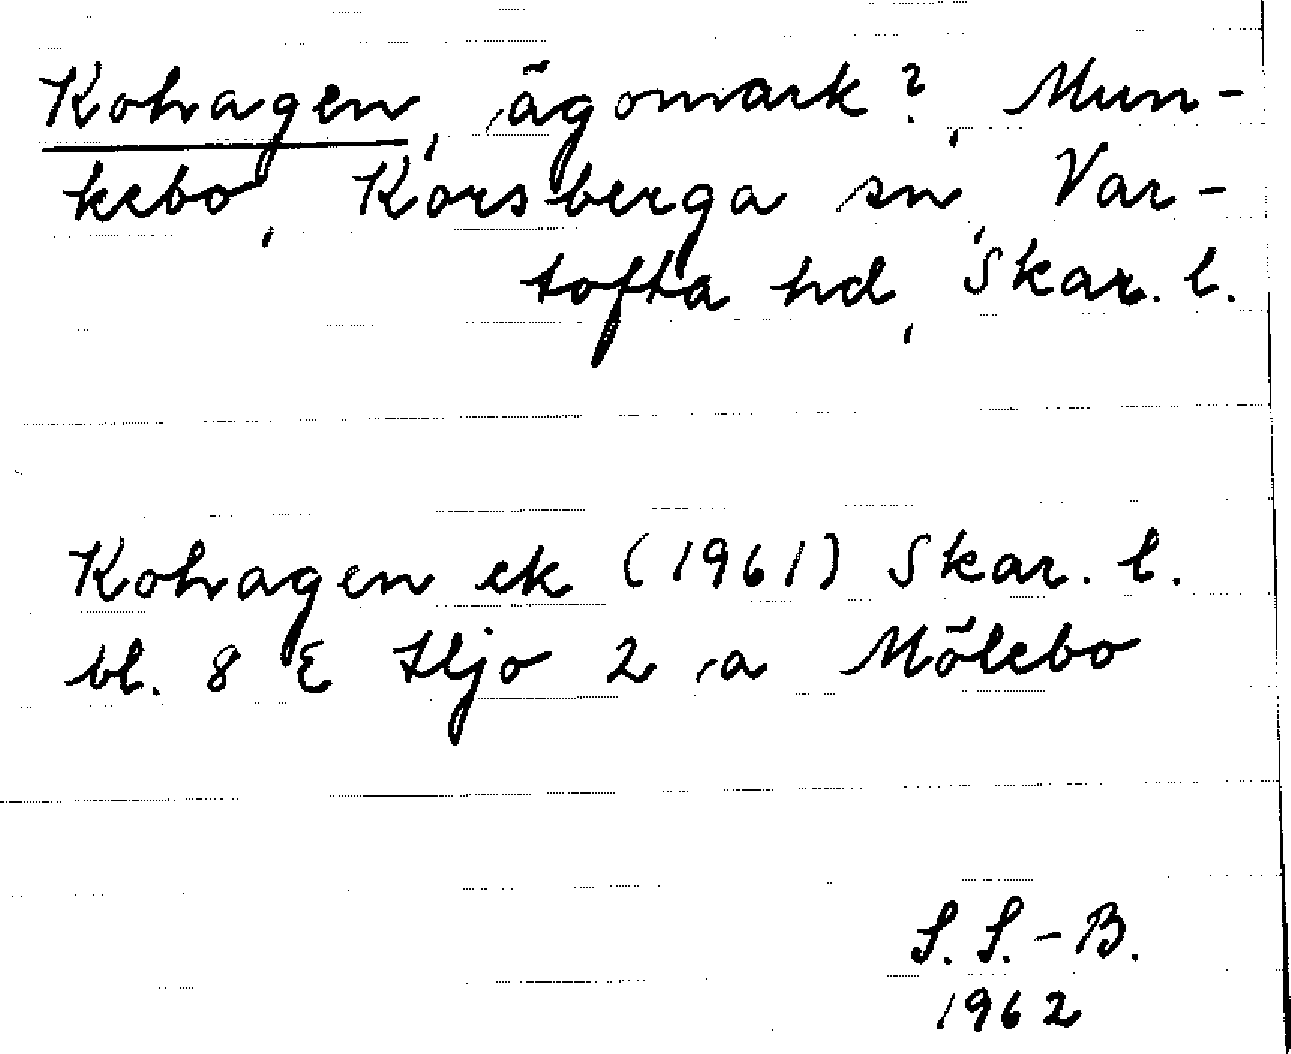 Kohagen, ägomark?, Mun-
kebo, Korsberga sn, Var-
tofta hd, Skar. l.
Kohagen ek (1961) Skar. l.
bl. 8 E Hjo 2 a Mölebo
S. S.-B.
1962